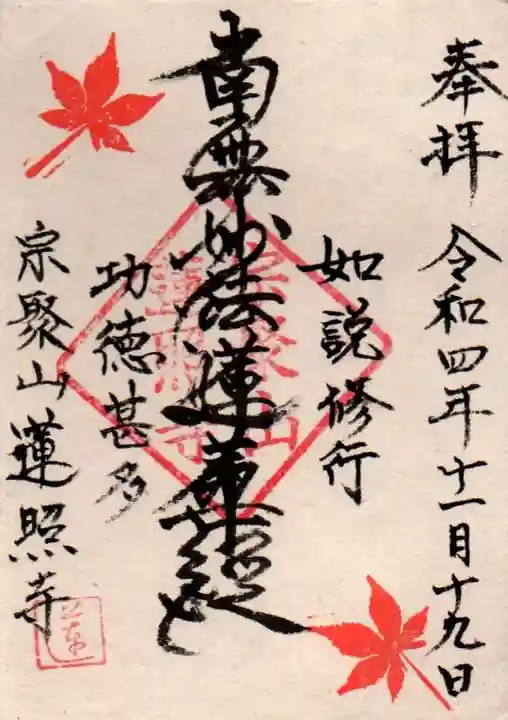 奉拝 令和四年十一月十九日
如説修行
南無妙法蓮華経
功徳甚多
宗聚山蓮照寺
宗聚山
蓮照寺